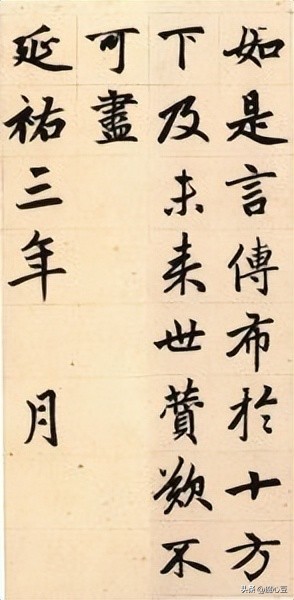 如是言傳布於十方
下及未来世賛歎不
可盡
延祐三年 月
头条@圆心豆